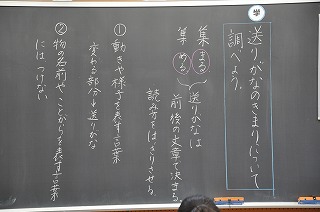 学
送りがなのきまりについて
調べよう。
集まる
集める
送りがなは
前後の文章で決まる。
読み方をはっきりさせる。
①動きや様子を表す言葉
変わる部分↓送りがな
②物の名前やことがらを表す言葉
にはつけない